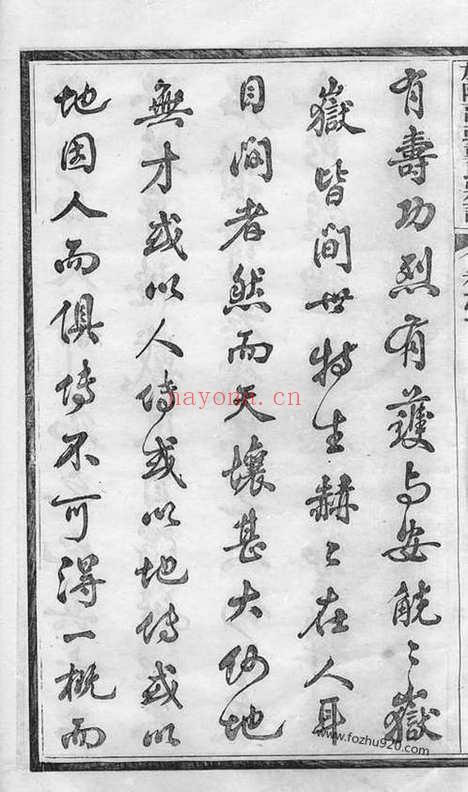 有壽功烈有護与安觥〻嶽
嶽皆間世特生赫〻在人耳
目間者然而天壤甚大何地
無才或以人傳或以地傳或以
地因人而俱傳不可得一概而
nayona.cn
www.fozhu920.com